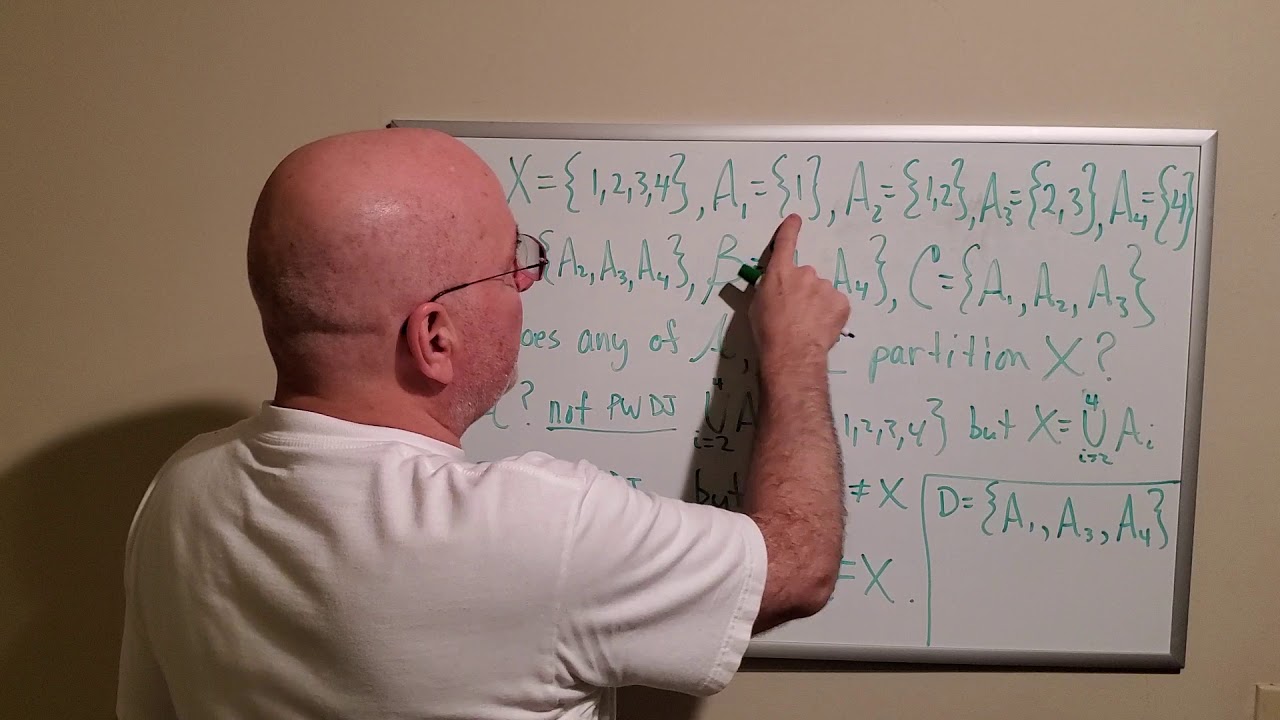 X = {1,2,3,4}, A₁ = {1}, A₂ = {1,2}, A₃ = {2,3}, A₄ = {4}
{A₂, A₃, A₄}, B = A₄}, C = {A₁, A₂, A₃}
oes any of A, partition X?
? not PWDJ ⋃ᵢ₌₂⁴ A 1,2,3,4} but X = ⋃ᵢ₌₂⁴ Aᵢ
but ≠ X
D = {A₁, A₃, A₄}
= X.